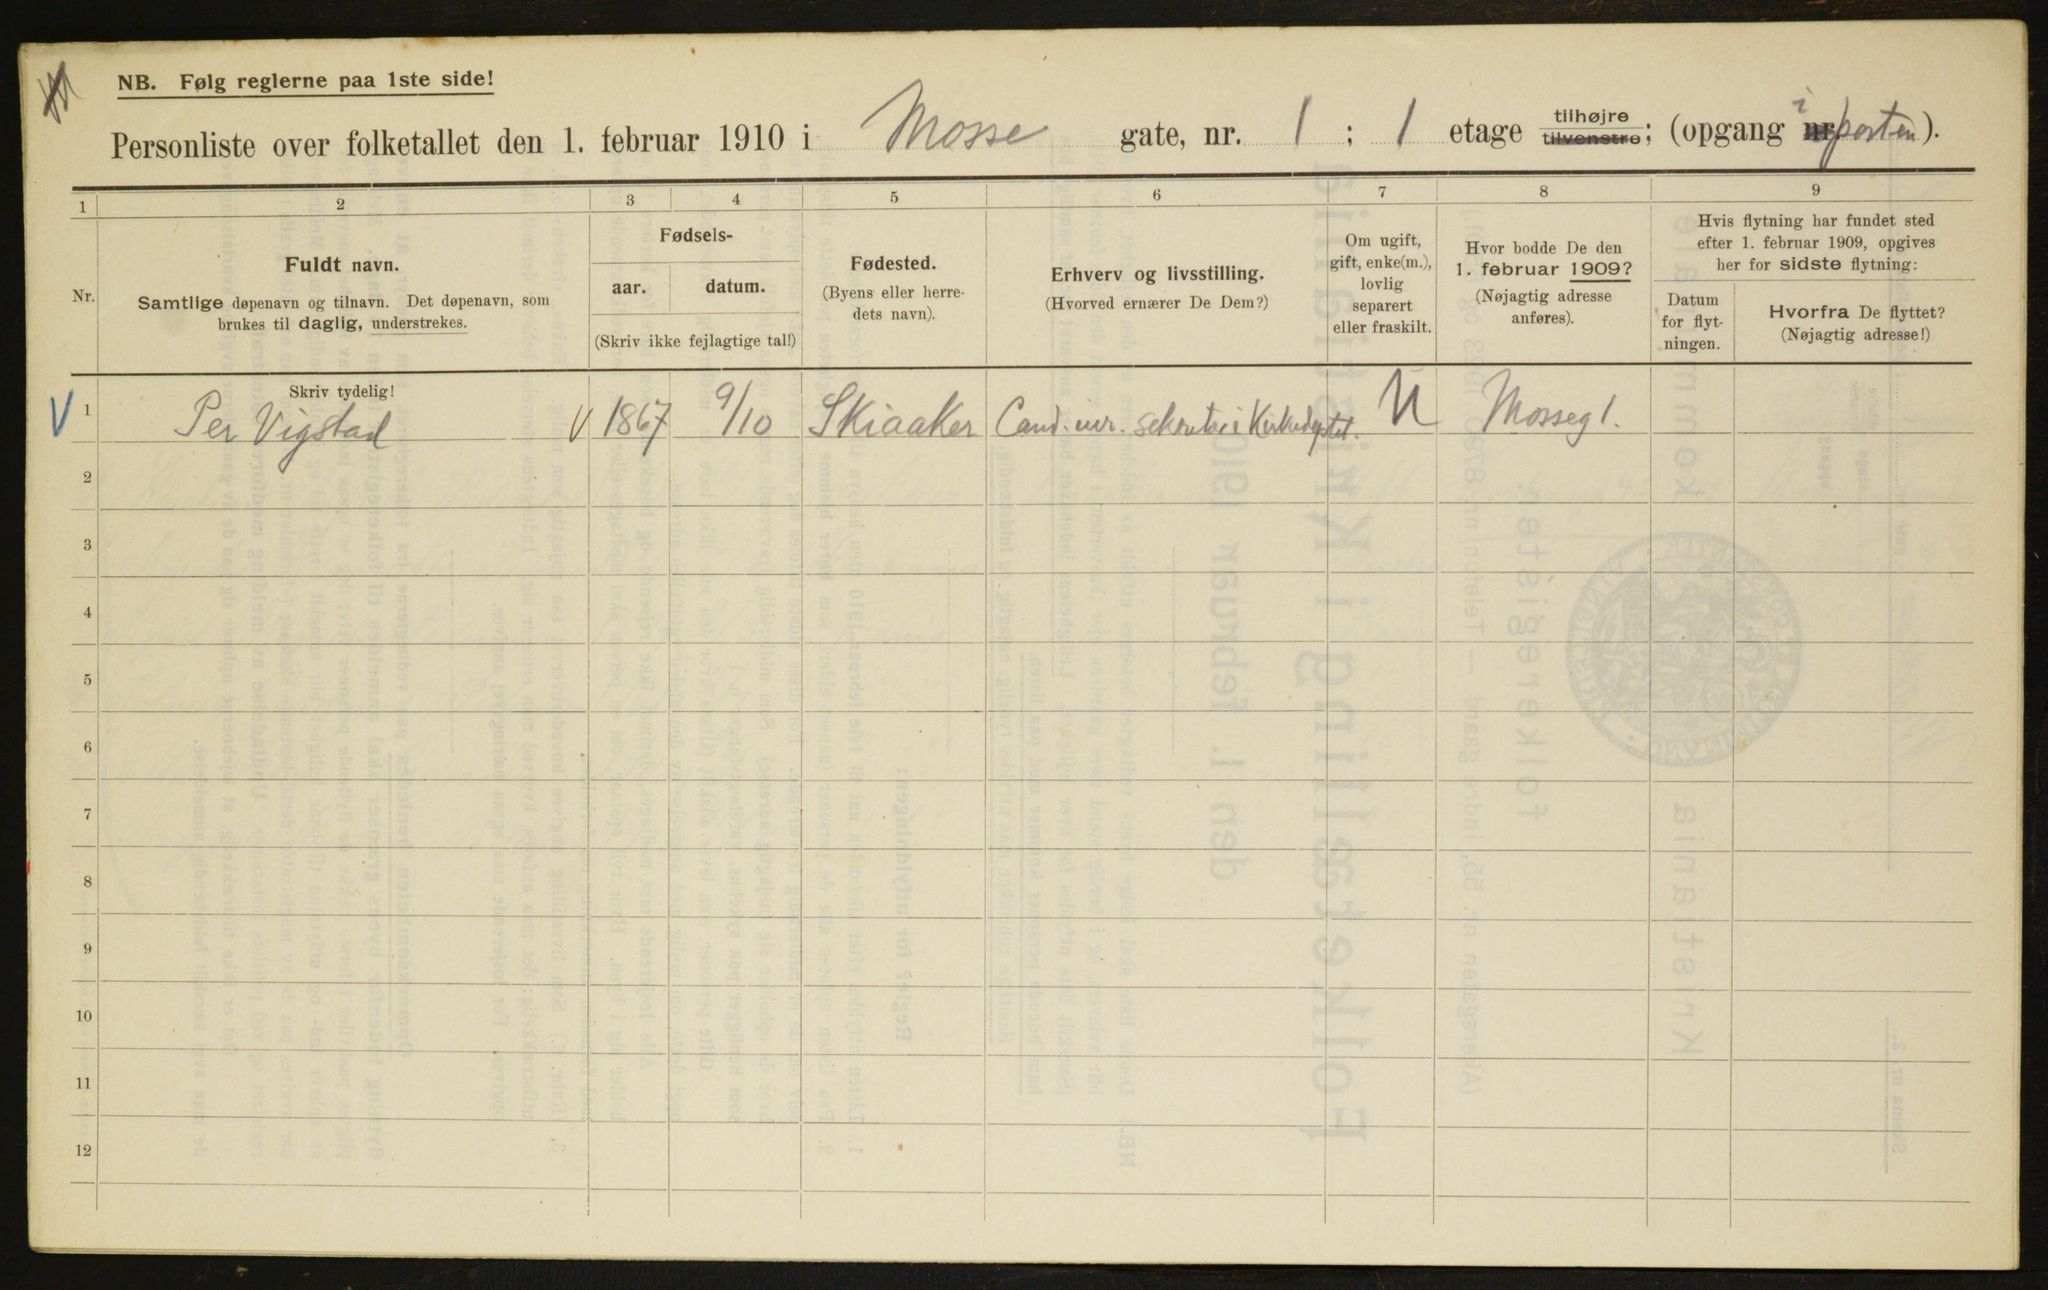 NB. Følg reglerne paa 1ste side!
Personliste over folketallet den 1. februar 1910 i Mosse gate, nr. 1 ; 1 etage tilhøjre tilvenstre; (opgang nr. i porten).
1 2 3 4 5 6 7 8 9
Nr.
Fuldt navn.
Samtlige døpenavn og tilnavn. Det døpenavn, som
brukes til daglig, understrekes.
Fødsels-
aar. datum.
(Skriv ikke fejlagtige tal!)
Fødested.
(Byens eller herre-
dets navn).
Erhverv og livsstilling.
(Hvorved ernærer De Dem?)
Om ugift,
gift, enke(m.),
lovlig
separert
eller fraskilt.
Hvor bodde De den
1. februar 1909?
(Nøjagtig adresse
anføres).
Hvis flytning har fundet sted
efter 1. februar 1909, opgives
her for sidste flytning:
Datum
for flyt-
ningen.
Hvorfra De flyttet?
(Nøjagtig adresse!)
Skriv tydelig!
V 1 Per Vigstad V 1867 9/10 Skiaaker Cand. jur. sekretær i Kirkedeptet. U Mosseg 1.
2
3
4
5
6
7
8
9
10
11
12